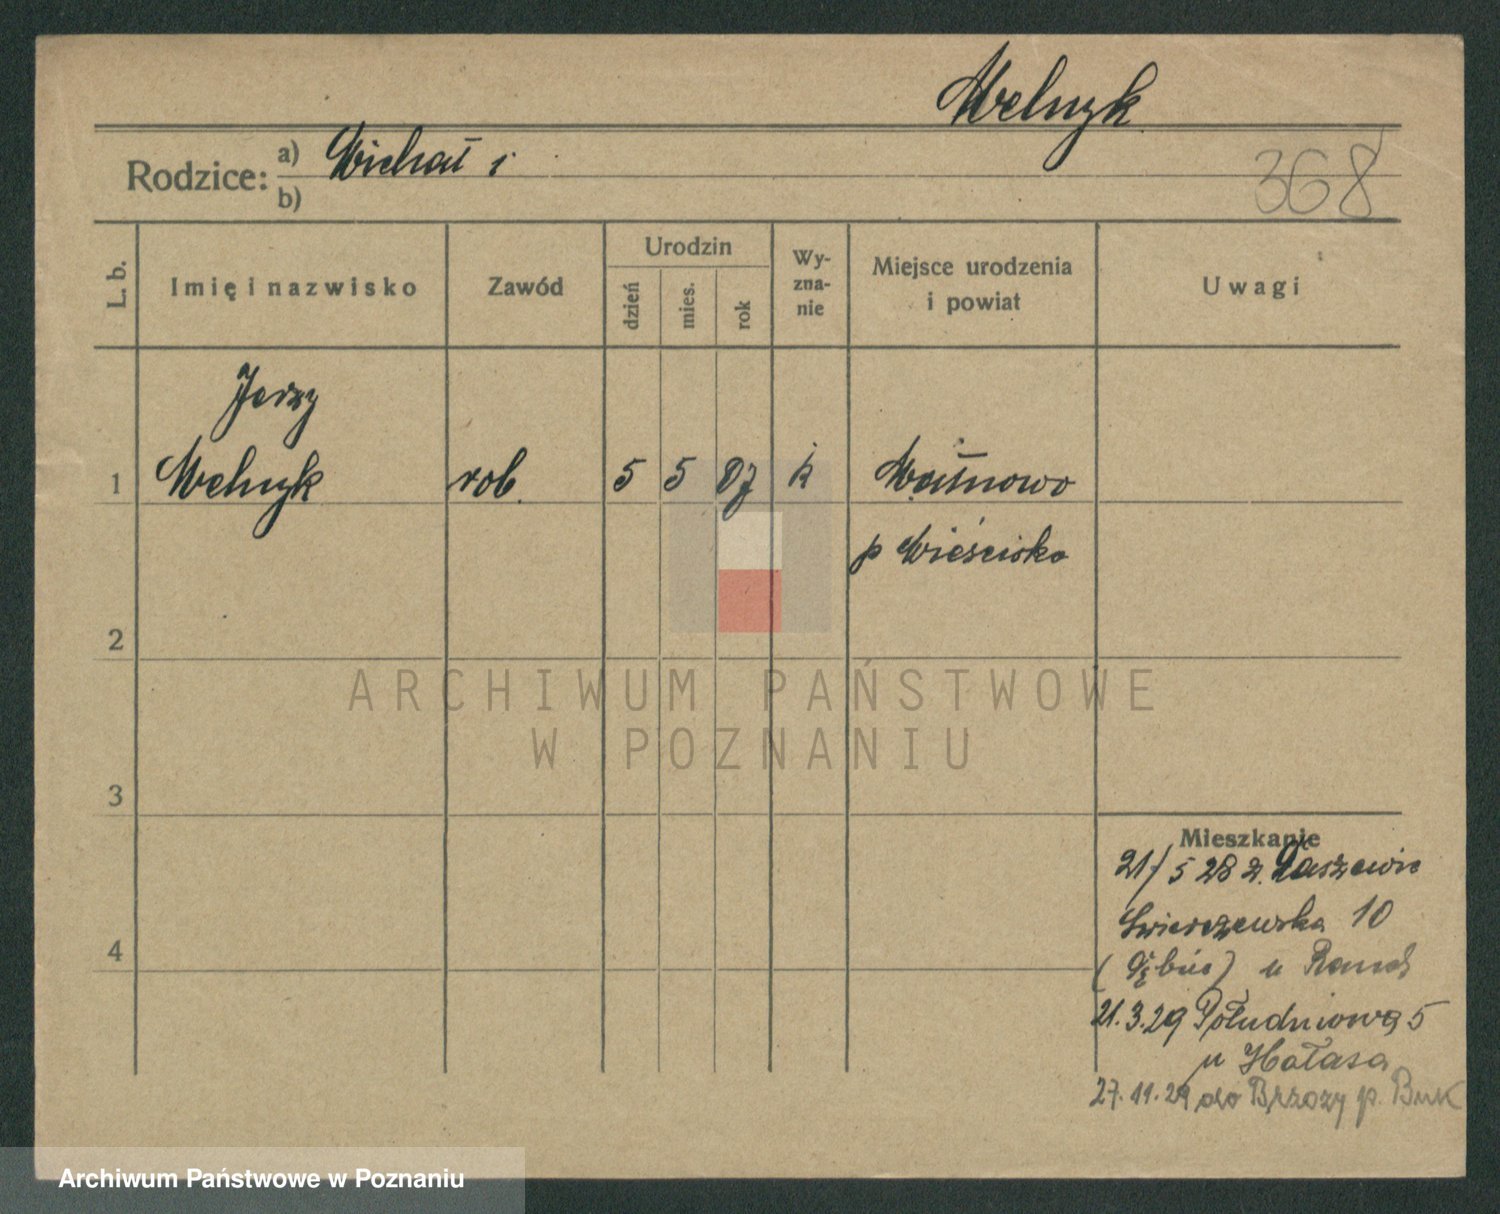 Melnyk
Rodzice: a) Michał i
b)
368
L. b.
Imię i nazwisko
Zawód
Urodzin
dzień
mies.
rok
Wy-
zna-
nie
Miejsce urodzenia
i powiat
Uwagi
Jerzy
1 Melnyk rob. 5 5 07 k
p
2
3
4
Mieszkanie
21/5 28 z
10
( ) u
21.3.29 Południowa 5
u Hałasa
27.11.29 do Brzozy p. Buk
ARCHIWUM PAŃSTWOWE
W POZNANIU
Archiwum Państwowe w Poznaniu